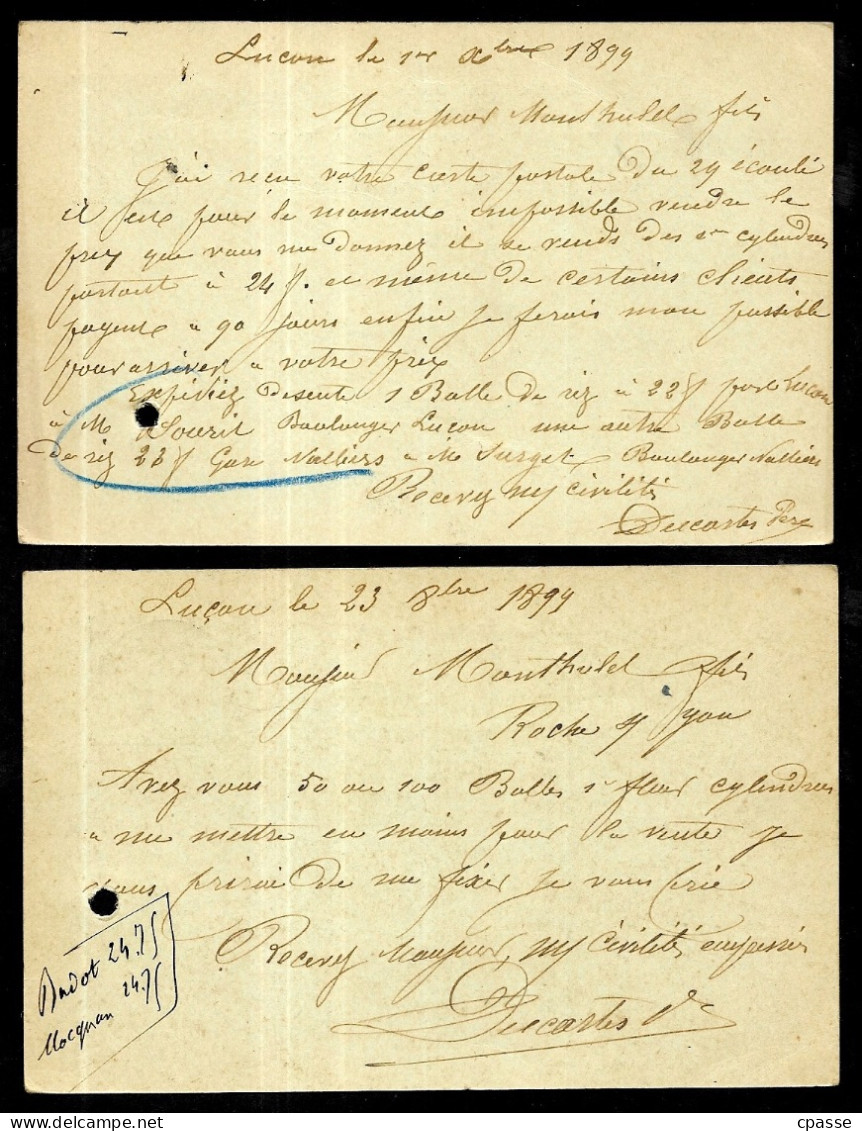 Luçon le 1er Xbre 1899
Monsieur Monthulet fils
J'ai reçu votre carte postale du 29 écoulé
il est pour le moment impossible vendre le
prix que vous me donnez il se vends des 1r cylindres
partout à 24 f. et même de certains clients
payent à 90 jours enfin je ferais mon possible
pour arriver a votre prix
Expédiez desuite 1 Balle de riz à 22 f
à M Souril Boulanger Luçon une autre Balle
de riz 22 f Gare Nalliers a Mr Surget Boulanger Nalliers
Recevez mes civilités
Descartes Père
Luçon le 23 8bre 1899
Monsieur Monthulet fils
Roche s/ yon
Avez vous 50 ou 100 Balles 1r fleur cylindres
a me mettre en mains pour la vente je
vous prirai de me fixer je vous prie
Recevez Monsieur, mes civilités empressées
Descartes
Badot 24.75
Mocquan 24.75
cpasse